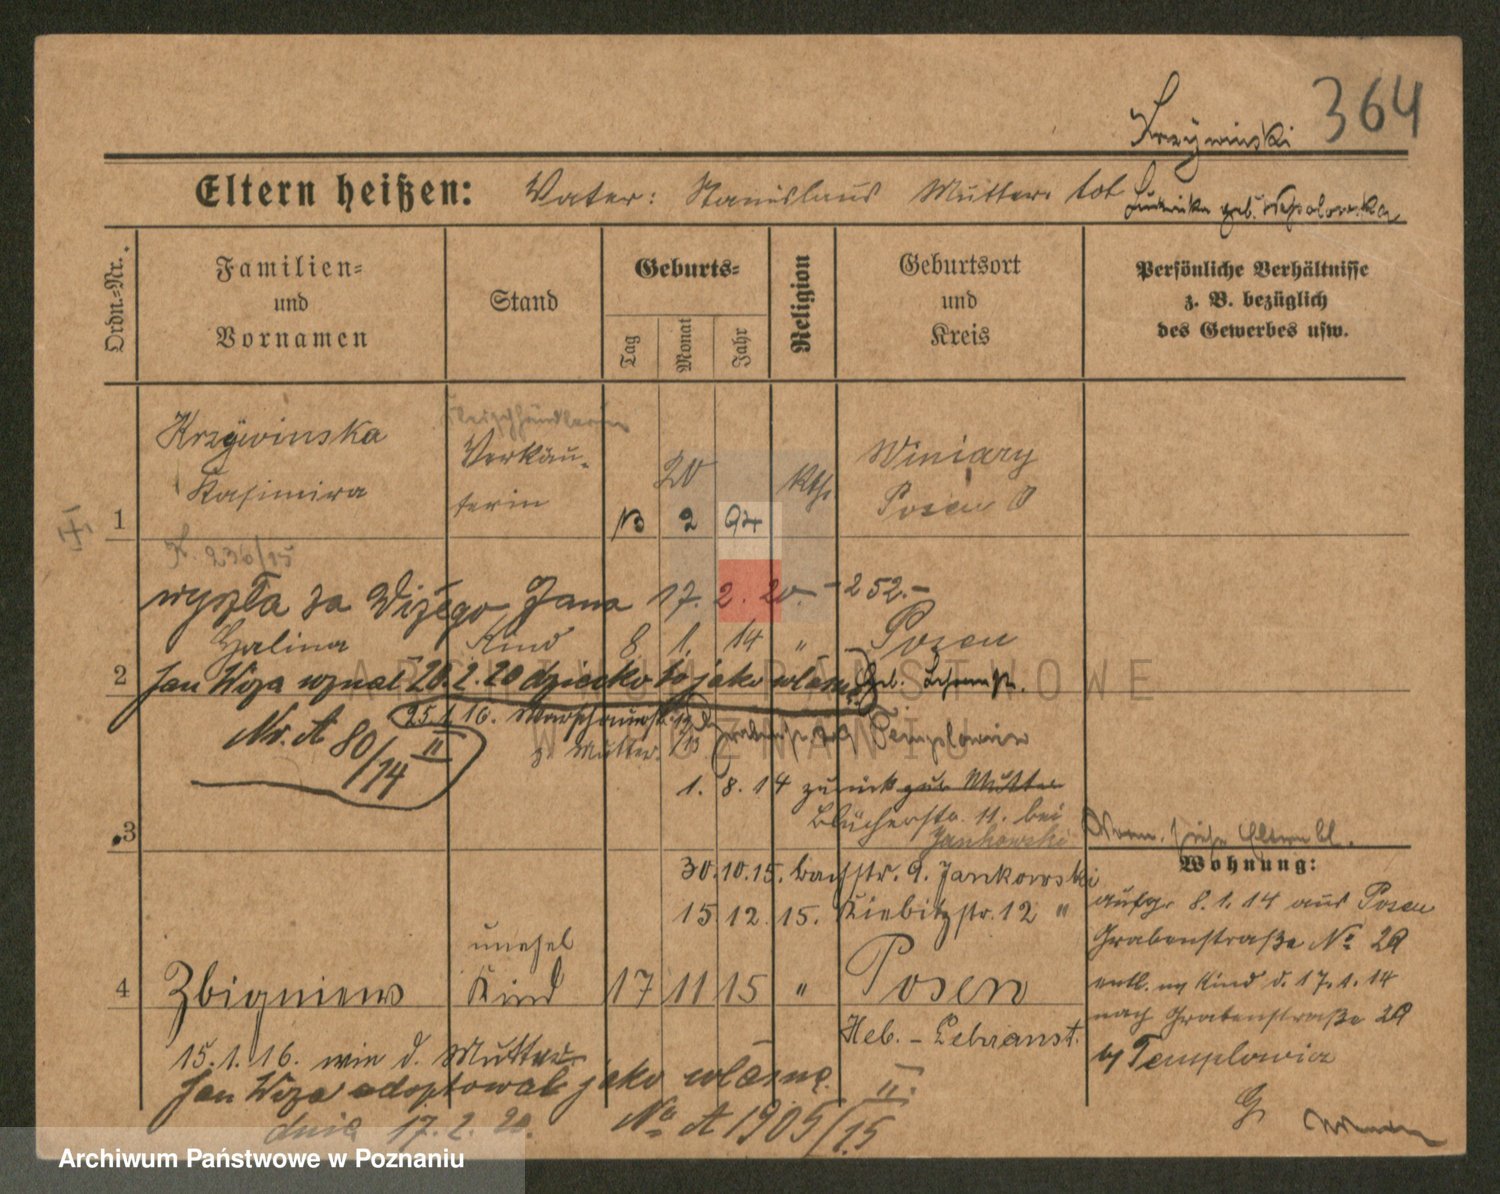 364
Krzÿwinski
Eltern heißen: Vater: Stanislaus Mutter: tot
geb.
Ordn.-Nr.
Familien=
und
Vornamen
Stand
Geburts=
Tag
Monat
Jahr
Religion
Geburtsort
und
Kreis
Persönliche Verhältnisse
z. B. bezüglich
des Gewerbes usw.
Krzÿwinska
Verkäu-
Winiary
Kasimira
terin
20
kth.
Posen O
1
2
94
K. 236/15
wyszła za Wizego Jana 17. 2. 20. - 252.-
Halina Kind 8 1. 14 " Posen
2
Jan Wiza uznał 20.2.20 dziecko to jako własne
Nr. A 80/14 II
25.1.16. Warschauerstr.
z. Mutter.
Templowicz
1. 8. 14 zurück zur Mutter
Blücherstr. 11. bei
Jankowski
3
Wohnung:
30.10.15. Bachstr. 9. Jankowski
aufg. 8. 1. 14 aus Posen
15 12. 15. Kiebitzstr. 12 "
Grabenstraße No 29
unehel
4
Zbigniew Kind 17 11 15 " Posen
entl. m Kind d. 17. 1. 14
nach Grabenstraße 29
Heb.-Lehranst.
by Templowicz
15. 1. 16. wie d. Mutter
Jan Wiza adoptował jako własne
dnia 17. 2. 20. No A 1905/15 II.
ARCHIWUM PAŃSTWOWE
W POZNANIU
Archiwum Państwowe w Poznaniu